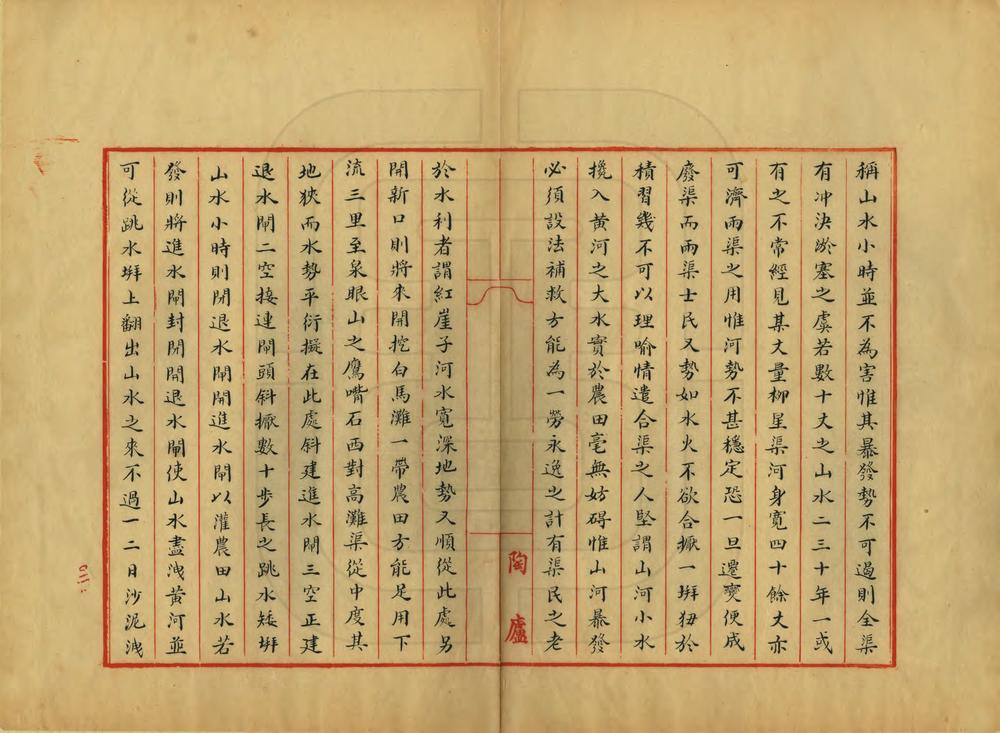 稱山水小時並不為害惟其暴發勢不可過則全渠
有冲決淤塞之虞若數十丈之山水二三十年一或
有之不常經見某丈量柳星渠河身寬四十餘丈亦
可濟兩渠之用惟河勢不甚穩定恐一旦遷變便成
廢渠而兩渠士民又勢如水火不欲合撅一壩狃於
積習幾不可以理喻情遣合渠之人堅謂山河小水
攙入黃河之大水實於農田毫無妨碍惟山河暴發
必須設法補救方能為一勞永逸之計有渠民之老
陶廬
於水利者謂紅崖子河水寬深地勢又順從此處另
開新口則將來開挖白馬灘一帶農田方能足用下
流三里至泉眼山之鷹嘴石西對高灘渠從中度其
地狹而水勢平衍擬在此處斜建進水閘三空正建
退水閘二空接連閘頭斜撅數十步長之跳水矮壩
山水小時則閉退水閘開進水閘以灌農田山水若
發則將進水閘封閉開退水閘使山水盡洩黃河並
可從跳水壩上翻出山水之來不過一二日沙泥洩